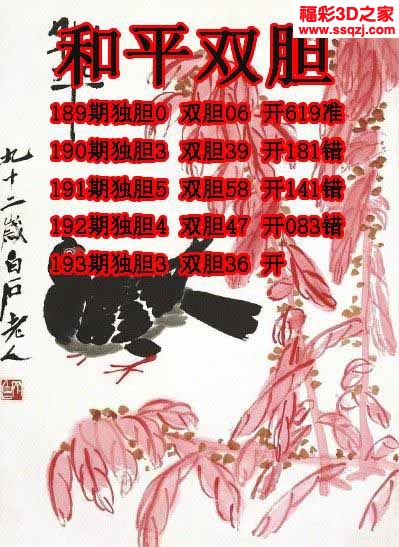 福彩3D之家
www.ssqzj.com
和平
和平双胆
189期独胆0 双胆06 开619准
190期独胆3 双胆39 开181错
191期独胆5 双胆58 开141错
192期独胆4 双胆47 开083错
193期独胆3 双胆36 开
九十二岁白石老人